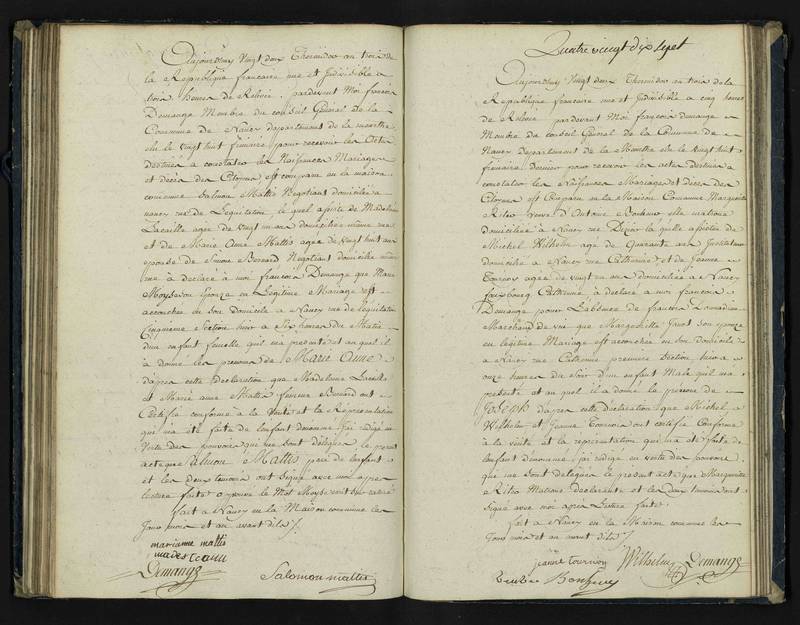 Aujourdhuy Vingt deux Thermidor an trois de
la Republique francaise une et Indivisible a
trois heures de Relevée, pardevant Moi françois
Demange Membre du conseil Général de la
Commune de Nancy departement de la meurthe
elu le vingt huit frimaire pour recevoir les Actes
destinés a constater les Naissances Mariages
et décès des Citoyens est comparu en la maison
commune Salmon Mattis Negotiant domicilié a
nancy rue de Legalitation, le quel assisté de Madelaine
agée de vingt un ans domiciliée même rue
et de Marie Anne Mattis agée de vingt huit ans
epouse de Simon Bernard Negotiant domicilié même
rue à declaré à moi françois Demange que Marie
Moyse son Epouse en Légitime Mariage est
accouchée en son Domicile a Nancy rue de
Cinquieme Section hier a Six heures du Matin
d'un enfant femelle qu'il m'a presenté et au quel il
à donné les prenoms de Marie Anne
d'apres cette declaration que Madelaine
et Marie anne Mattis femme Bernard ont
Certifié conforme à la Verité et la Représentation
qui m'a été faite de l'enfant denommé j'ai rédigé en
Vertu des pouvoirs qui me sont délégués le present
acte que Salmon Mattis pere de l'enfant
et les deux temoins ont signé avec moi apres
lecture faite approuvé le Mot Moyse
fait a Nancy en la Maison commune les
Jour mois et an avant dits /.
marianne mattis
Demange
Salomon mattis
Quatre vingt dix sept
Aujourdhuy Vingt deux Thermidor an trois de la
Republique française une et Indivisible a cinq heures
de Relevée pardevant Moi françois Demange
Membre du conseil Général de la Commune de
Nancy Departement de la Meurthe elu le Vingt huit
frimaire Dernier pour recevoir les actes destinés a
constater les Naissances Mariages et décès des
Citoyens est Comparu en la Maison Commune Marguerite
veuve d'Antoine elle matrone
domiciliée a Nancy rue la quelle assistée de
Michel Wilhelm agé de Quarante ans
domicilié a Nancy rue Catherine, et de Jeanne
Tournois agée de vingt un ans Domiciliée a Nancy
fauxbourg Catherine à déclaré a moi francois
Demange pour Labsence de francois
Marchand de vin que Margueritte Janot son epouse
en légitime Mariage est accouchée en son domicile
a Nancy rue Catherine premiere Section, hier a
onze heures du Soir d'un enfant Male qu'il m'a
presenté et au quel il a donné le prénom de
Joseph d'apres cette declaration que Michel
Wilhelm et Jeanne Tournois ont certifié Conforme
à la verité et la representation qui m'a été faite de
l'enfant dénommé j'ai rédigé en vertu des pouvoirs
qui me sont délégués le present acte que Marguerite
Matrone declarante et les deux temoins ont
Signé avec moi apres Lecture faite
fait a Nancy en la Maison commune les
Jour mois et an avant dits /.
jeanne tournoy Wilhelm Demange